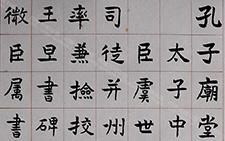 孔子廟堂
太子中
臣虞世
司徒并州
率兼撿挍
王旦書碑
微臣属書